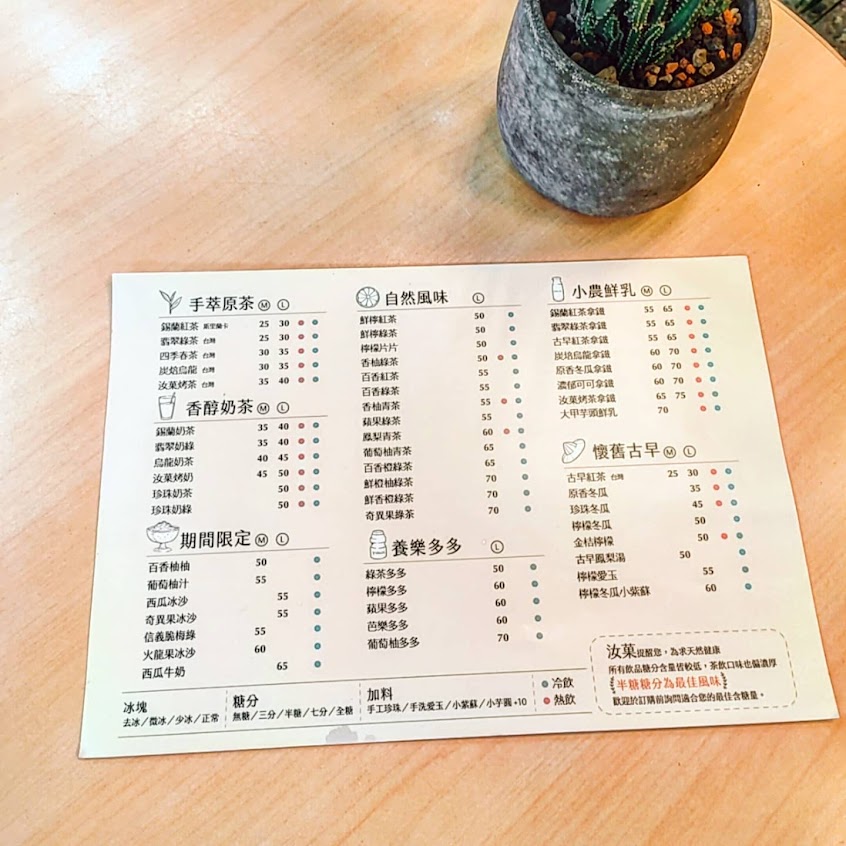 手萃原茶 M L
錫蘭紅茶 斯里蘭卡 25 30
翡翠綠茶 台灣 25 30
四季春茶 台灣 30 35
炭焙烏龍 台灣 30 35
汝菓烤茶 台灣 35 40
香醇奶茶 M L
錫蘭奶茶 35 40
翡翠奶綠 35 40
烏龍奶茶 40 45
汝菓烤奶 45 50
珍珠奶茶 50
珍珠奶綠 50
期間限定 M L
百香柚柚 50
葡萄柚汁 55
西瓜冰沙 55
奇異果冰沙 55
信義脆梅綠 55
火龍果冰沙 60
西瓜牛奶 65
自然風味 L
鮮檸紅茶 50
鮮檸綠茶 50
檸檬片片 50
香柚綠茶 50
百香紅茶 55
百香綠茶 55
香柚青茶 55
蘋果綠茶 55
鳳梨青茶 60
葡萄柚青茶 65
百香橙綠茶 65
鮮橙柚綠茶 70
鮮香橙綠茶 70
奇異果綠茶 70
養樂多多 L
綠茶多多 50
檸檬多多 60
蘋果多多 60
芭樂多多 60
葡萄柚多多 70
小農鮮乳 M L
錫蘭紅茶拿鐵 55 65
翡翠綠茶拿鐵 55 65
古早紅茶拿鐵 55 65
炭焙烏龍拿鐵 60 70
原香冬瓜拿鐵 60 70
濃郁可可拿鐵 60 70
汝菓烤茶拿鐵 65 75
大甲芋頭鮮乳 70
懷舊古早 M L
古早紅茶 台灣 25 30
原香冬瓜 35
珍珠冬瓜 45
檸檬冬瓜 50
金桔檸檬 50
古早鳳梨湯 50
檸檬愛玉 55
檸檬冬瓜小紫蘇 60
冰塊
去冰/微冰/少冰/正常
糖分
無糖/三分/半糖/七分/全糖
加料
手工珍珠/手洗愛玉/小紫蘇/小芋圓+10
冷飲
熱飲
汝菓提醒您，為求天然健康
所有飲品糖分含量皆較低，茶飲口味也偏濃厚
半糖糖分為最佳風味
歡迎於訂購前詢問適合您的最佳含糖量。